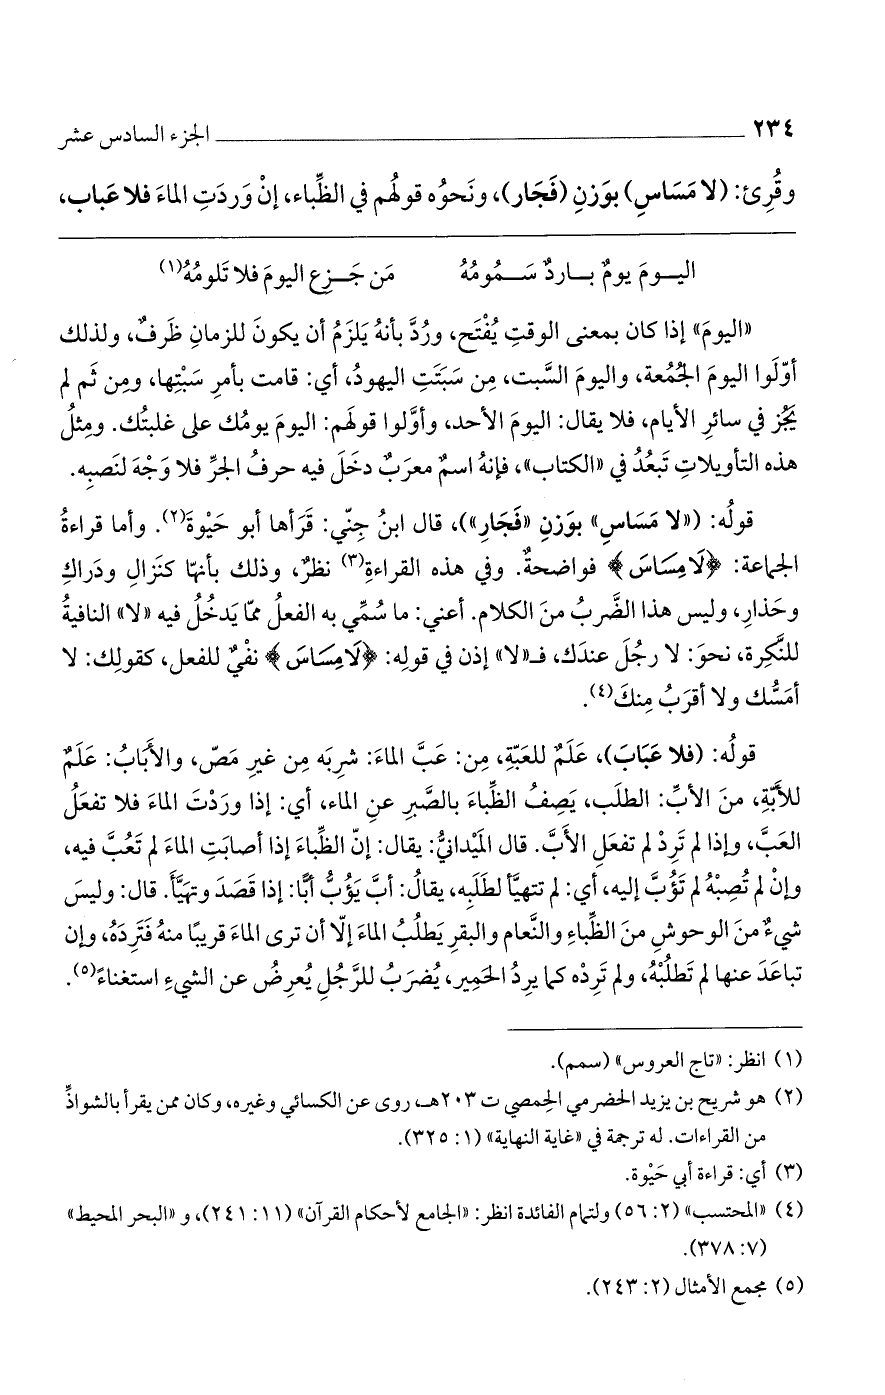 ٢٣٤ الجزء السادس عشر
وقُرِئ: (لا مَسَاسِ) بوَزنِ (فَجَار)، ونَحوُه قولُهم في الظِّباء، إنْ وَردَتِ الماءَ فلا عَباب،
اليــومَ يومٌ بــاردٌ سَــمُومُهُ مَن جَــزِع اليومَ فلا تَلومُهُ(١)
«اليومَ» إذا كان بمعنى الوقتِ يُفْتَح، ورُدَّ بأنهُ يَلزَمُ أن يكونَ للزمانِ ظَرفٌ، ولذلك
أوّلَوا اليومَ الجُمُعة، واليومَ السَّبت، مِن سَبَتَتِ اليهودُ، أي: قامت بأمرِ سَبْتِها، ومِن ثَم لم
يَجُز في سائرِ الأيام، فلا يقال: اليومَ الأحد، وأوَّلوا قولَهم: اليومَ يومُك على غلبتُك. ومِثلُ
هذه التأويلاتِ تَبعُدُ في «الكتاب»، فإنهُ اسمٌ معرَبٌ دخَلَ فيه حرفُ الجرِّ فلا وَجْهَ لنَصبِه.
قولُه: («لا مَسَاسِ» بوَزنِ «فَجَارِ»)، قال ابنُ جِنّي: قَرَأها أبو حَيْوةَ(٢). وأما قراءةُ
الجماعة: ﴿لَا مِسَاسَ﴾ فواضحةٌ. وفي هذه القراءةِ(٣) نظرٌ، وذلك بأنها كنَزالِ ودَراكِ
وحَذارِ، وليس هذا الضَّربُ منَ الكلام. أعني: ما سُمِّي به الفعلُ ممّا يَدخُلُ فيه «لا» النافيةُ
للنَّكِرة، نحوَ: لا رجُلَ عندَك، فـ«لا» إذن في قولِه: ﴿لَا مِسَاسَ﴾ نفْيٌ للفعل، كقولِك: لا
أمَسُّك ولا أقرَبُ مِنكَ(٤).
قولُه: (فلا عَبَابَ)، عَلَمٌ للعَبّة، مِن: عَبَّ الماءَ: شرِبَه مِن غيرِ مَصّ، والأَبَابُ: عَلَمٌ
للأبَّةِ، منَ الأبِّ: الطلَب، يَصِفُ الظِّباءَ بالصَّبرِ عنِ الماء، أي: إذا ورَدْتَ الماءَ فلا تفعَلُ
العَبَّ، وإذا لم تَرِدْ لم تفعَلِ الأَبَّ. قال المَيْدانيُّ: يقال: إنّ الظِّباءَ إذا أصابَتِ الماءَ لم تَعُبَّ فيه،
وإنْ لم تُصِبْهُ لم تَؤُبَّ إليه، أي: لم تتهيَّأ لطَلَبِه، يقالُ: أبَّ يَؤُبُّ أبًّا: إذا قَصَدَ وتهيَّأَ. قال: وليسَ
شيءٌ منَ الوحوشِ منَ الظِّباءِ والنَّعام والبقرِ يَطلُبُ الماءَ إلّا أن ترى الماءَ قريبًا منهُ فتَرِدَهُ، وإن
تباعَدَ عنها لم تَطلُبْهُ، ولم تَرِدْه كما يرِدُ الحَمِير، يُضرَبُ للرَّجُلِ يُعرِضُ عن الشيءِ استغناءً(٥).
(١) انظر: «تاج العروس» (سمم).
(٢) هو شريح بن يزيد الحضرمي الحِمصي ت ٢٠٣هـ، روى عن الكسائي وغيره، وكان ممن يقرأ بالشواذِّ
من القراءات. له ترجمة في «غاية النهاية» (١: ٣٢٥).
(٣) أي: قراءة أبي حَيْوة.
(٤) «المحتسب» (٢: ٥٦) ولتمام الفائدة انظر: «الجامع لأحكام القرآن» (١١: ٢٤١)، و «البحر المحيط»
(٧: ٣٧٨).
(٥) مجمع الأمثال (٢: ٢٤٣).